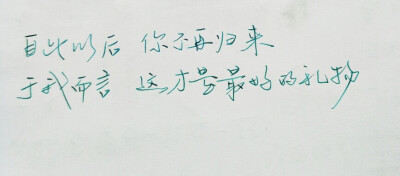 自此以后 你不再归来
于我而言 这才是最好的礼物